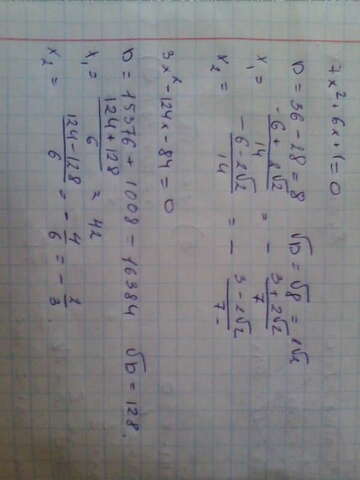 7x² + 6x + 1 = 0
D = 36 - 28 = 8 √D = √8 = 2√2
x₁ = (-6 + 2√2)/14 = - (3 + 2√2)/7
x₂ = (-6 - 2√2)/14 = - (3 - 2√2)/7-
3x² - 124x - 84 = 0
D = 15376 + 1008 = 16384 √D = 128.
x₁ = (124 + 128)/6 = 42
x₂ = (124 - 128)/6 = - 4/6 = - 2/3